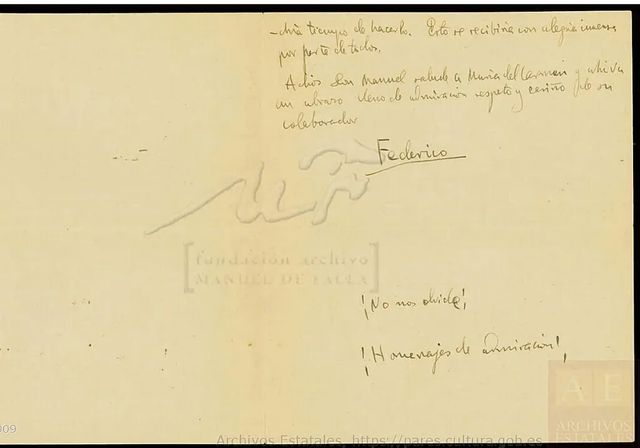 -dría tiempo de hacerlo. Esto se recibiría con alegría inmensa
por parte de todos.
Adios Don Manuel salude a María del Carmen y reciba
un abrazo lleno de admiración respeto y cariño de su
colaborador
Federico
[fundación archivo
MANUEL DE FALLA]
¡No nos olvide!
¡Homenajes de admiración!
A E
ARCHIVOS
ESTATALES
009
Archivos Estatales, https://pares.cultura.gob.es